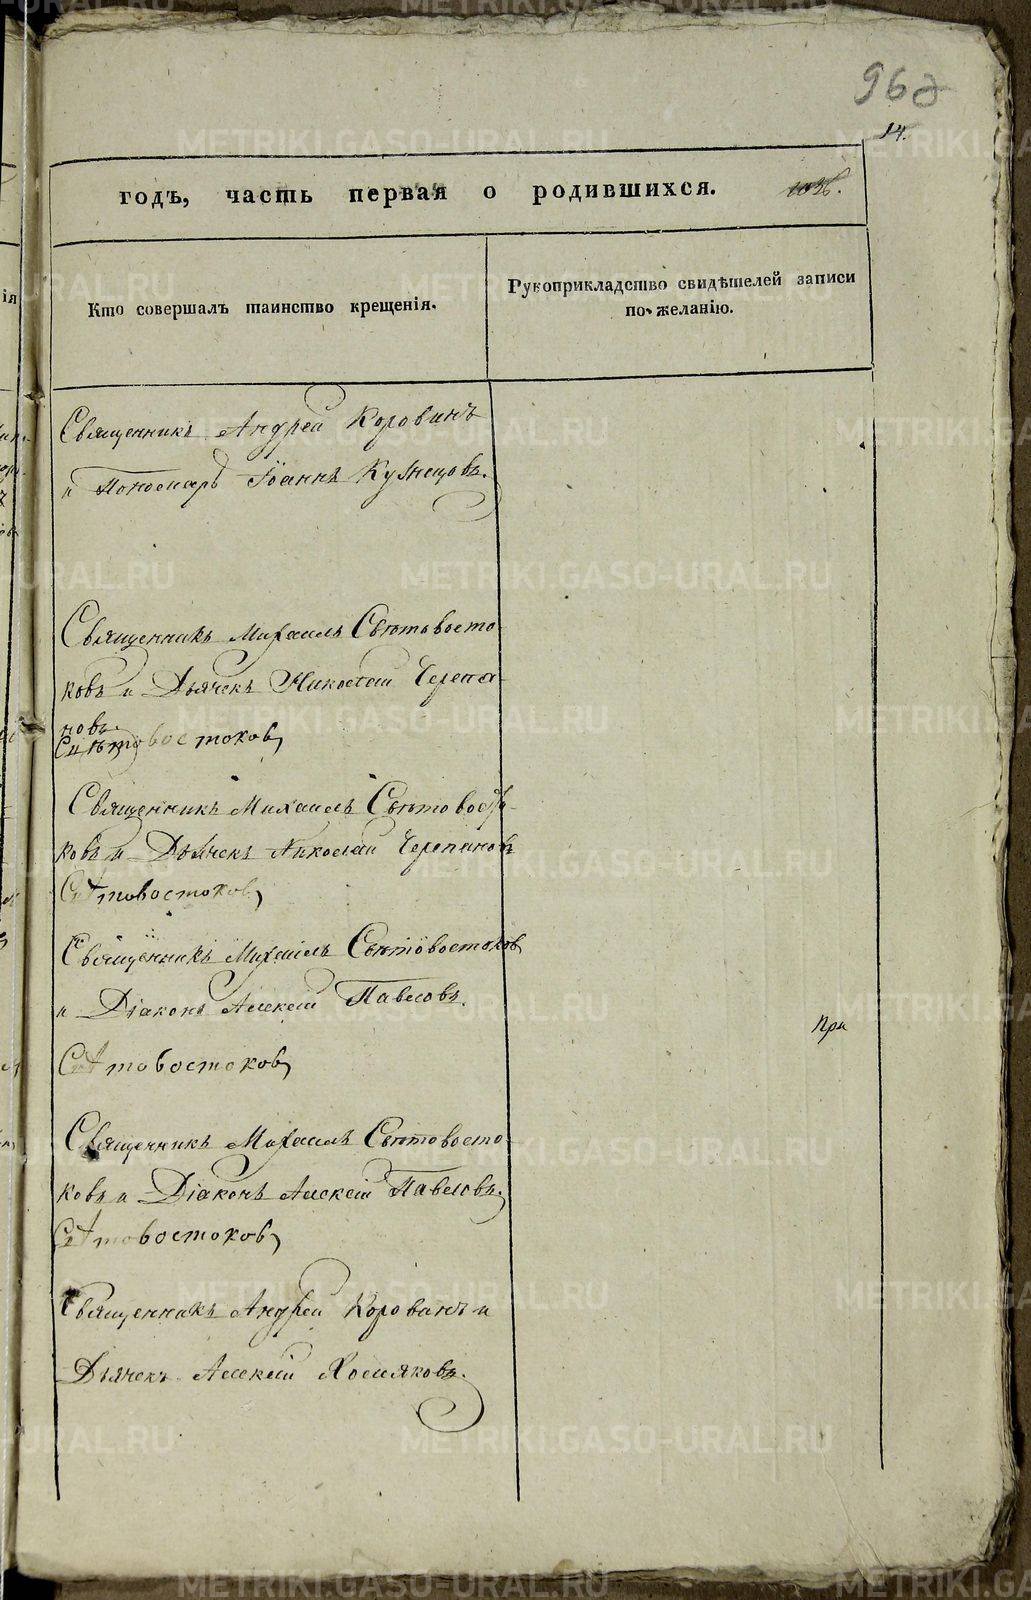 962
14.
годъ, часть первая о родившихся.
Кто совершалъ таинство крещенія.
Рукоприкладство свидѣтелей записи
по желанію.
Священникъ Андрей Коровинъ
и Пономарь Іоаннъ Кузнецовъ.
Священникъ Михаилъ Свѣтовосто-
ковъ и Дьячекъ Николай Черепа-
новъ.
Свѣтовостоковъ
Священникъ Михаилъ Свѣтовосто-
ковъ и Дьячекъ Николай Черепановъ
Свѣтовостоковъ
Священникъ Михаилъ Свѣтовостоковъ
и Діаконъ Алексей Павловъ.
Свѣтовостоковъ
При
Священникъ Михаилъ Свѣтовосто-
ковъ и Діаконъ Алексій Павловъ.
Свѣтовостоковъ
Священникъ Андрей Коровинъ и
Дьячекъ Алексій Хомяковъ.
METRIKI.GASO-URAL.RU